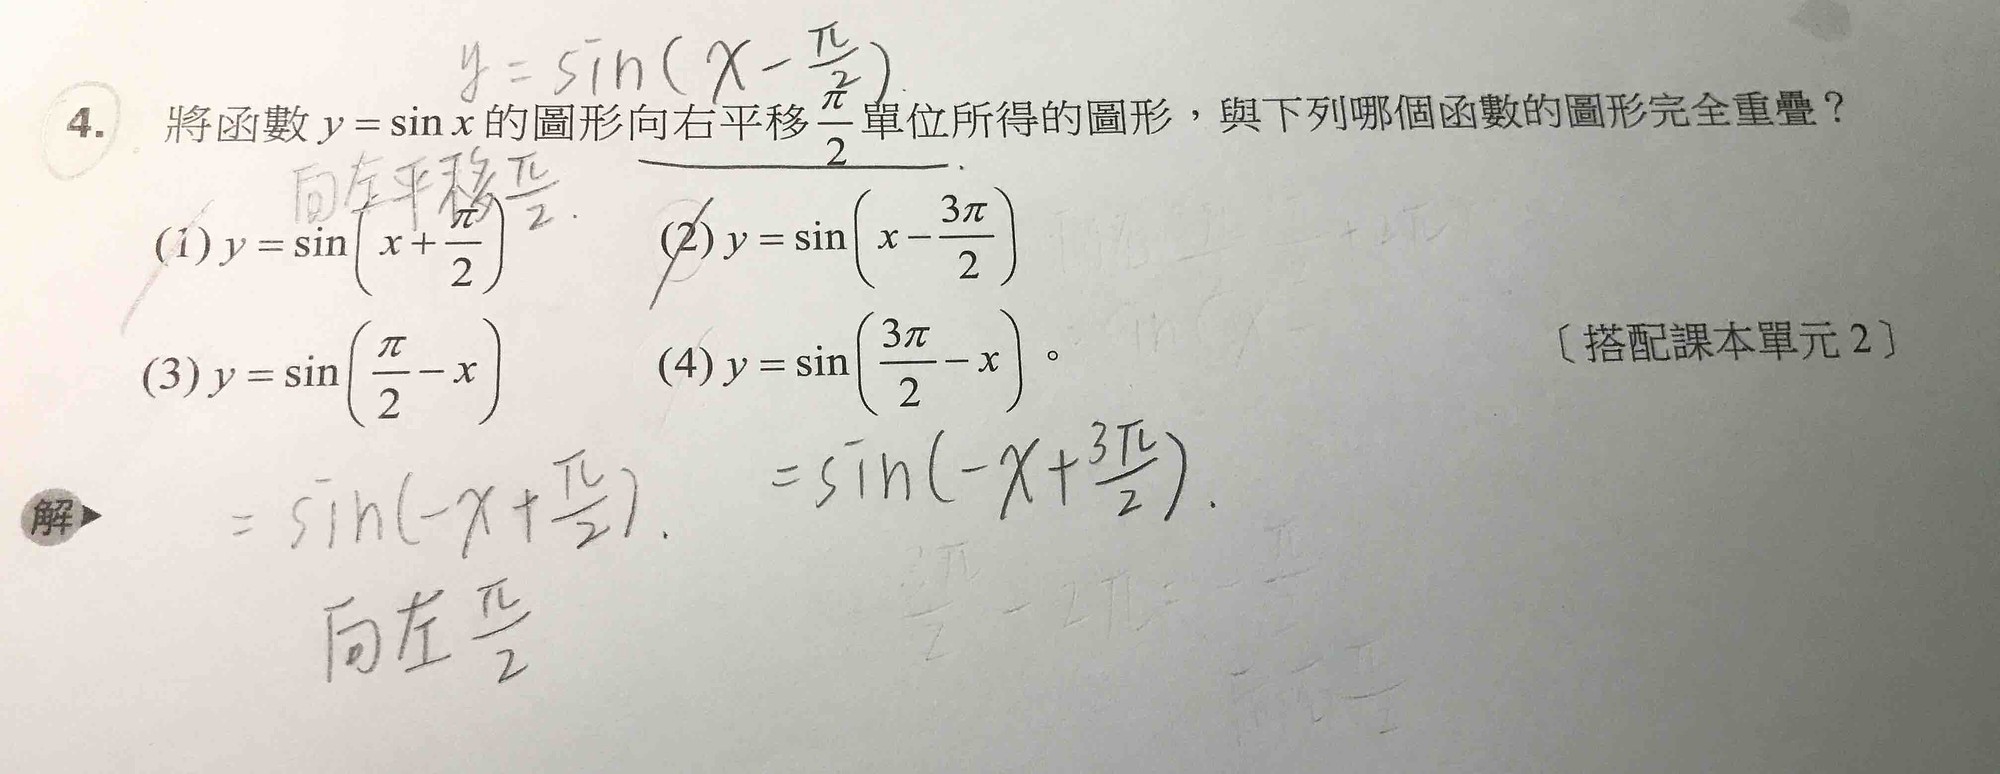 y = sin(x - π/2).
4. 將函數 y = sin x 的圖形向右平移 π/2 單位所得的圖形，與下列哪個函數的圖形完全重疊？
向左平移 π/2.
(1) y = sin(x + π/2) (2) y = sin(x - 3π/2)
(3) y = sin(π/2 - x) (4) y = sin(3π/2 - x)。 〔搭配課本單元2〕
= sin(-x + π/2). = sin(-x + 3π/2).
解
向左 π/2